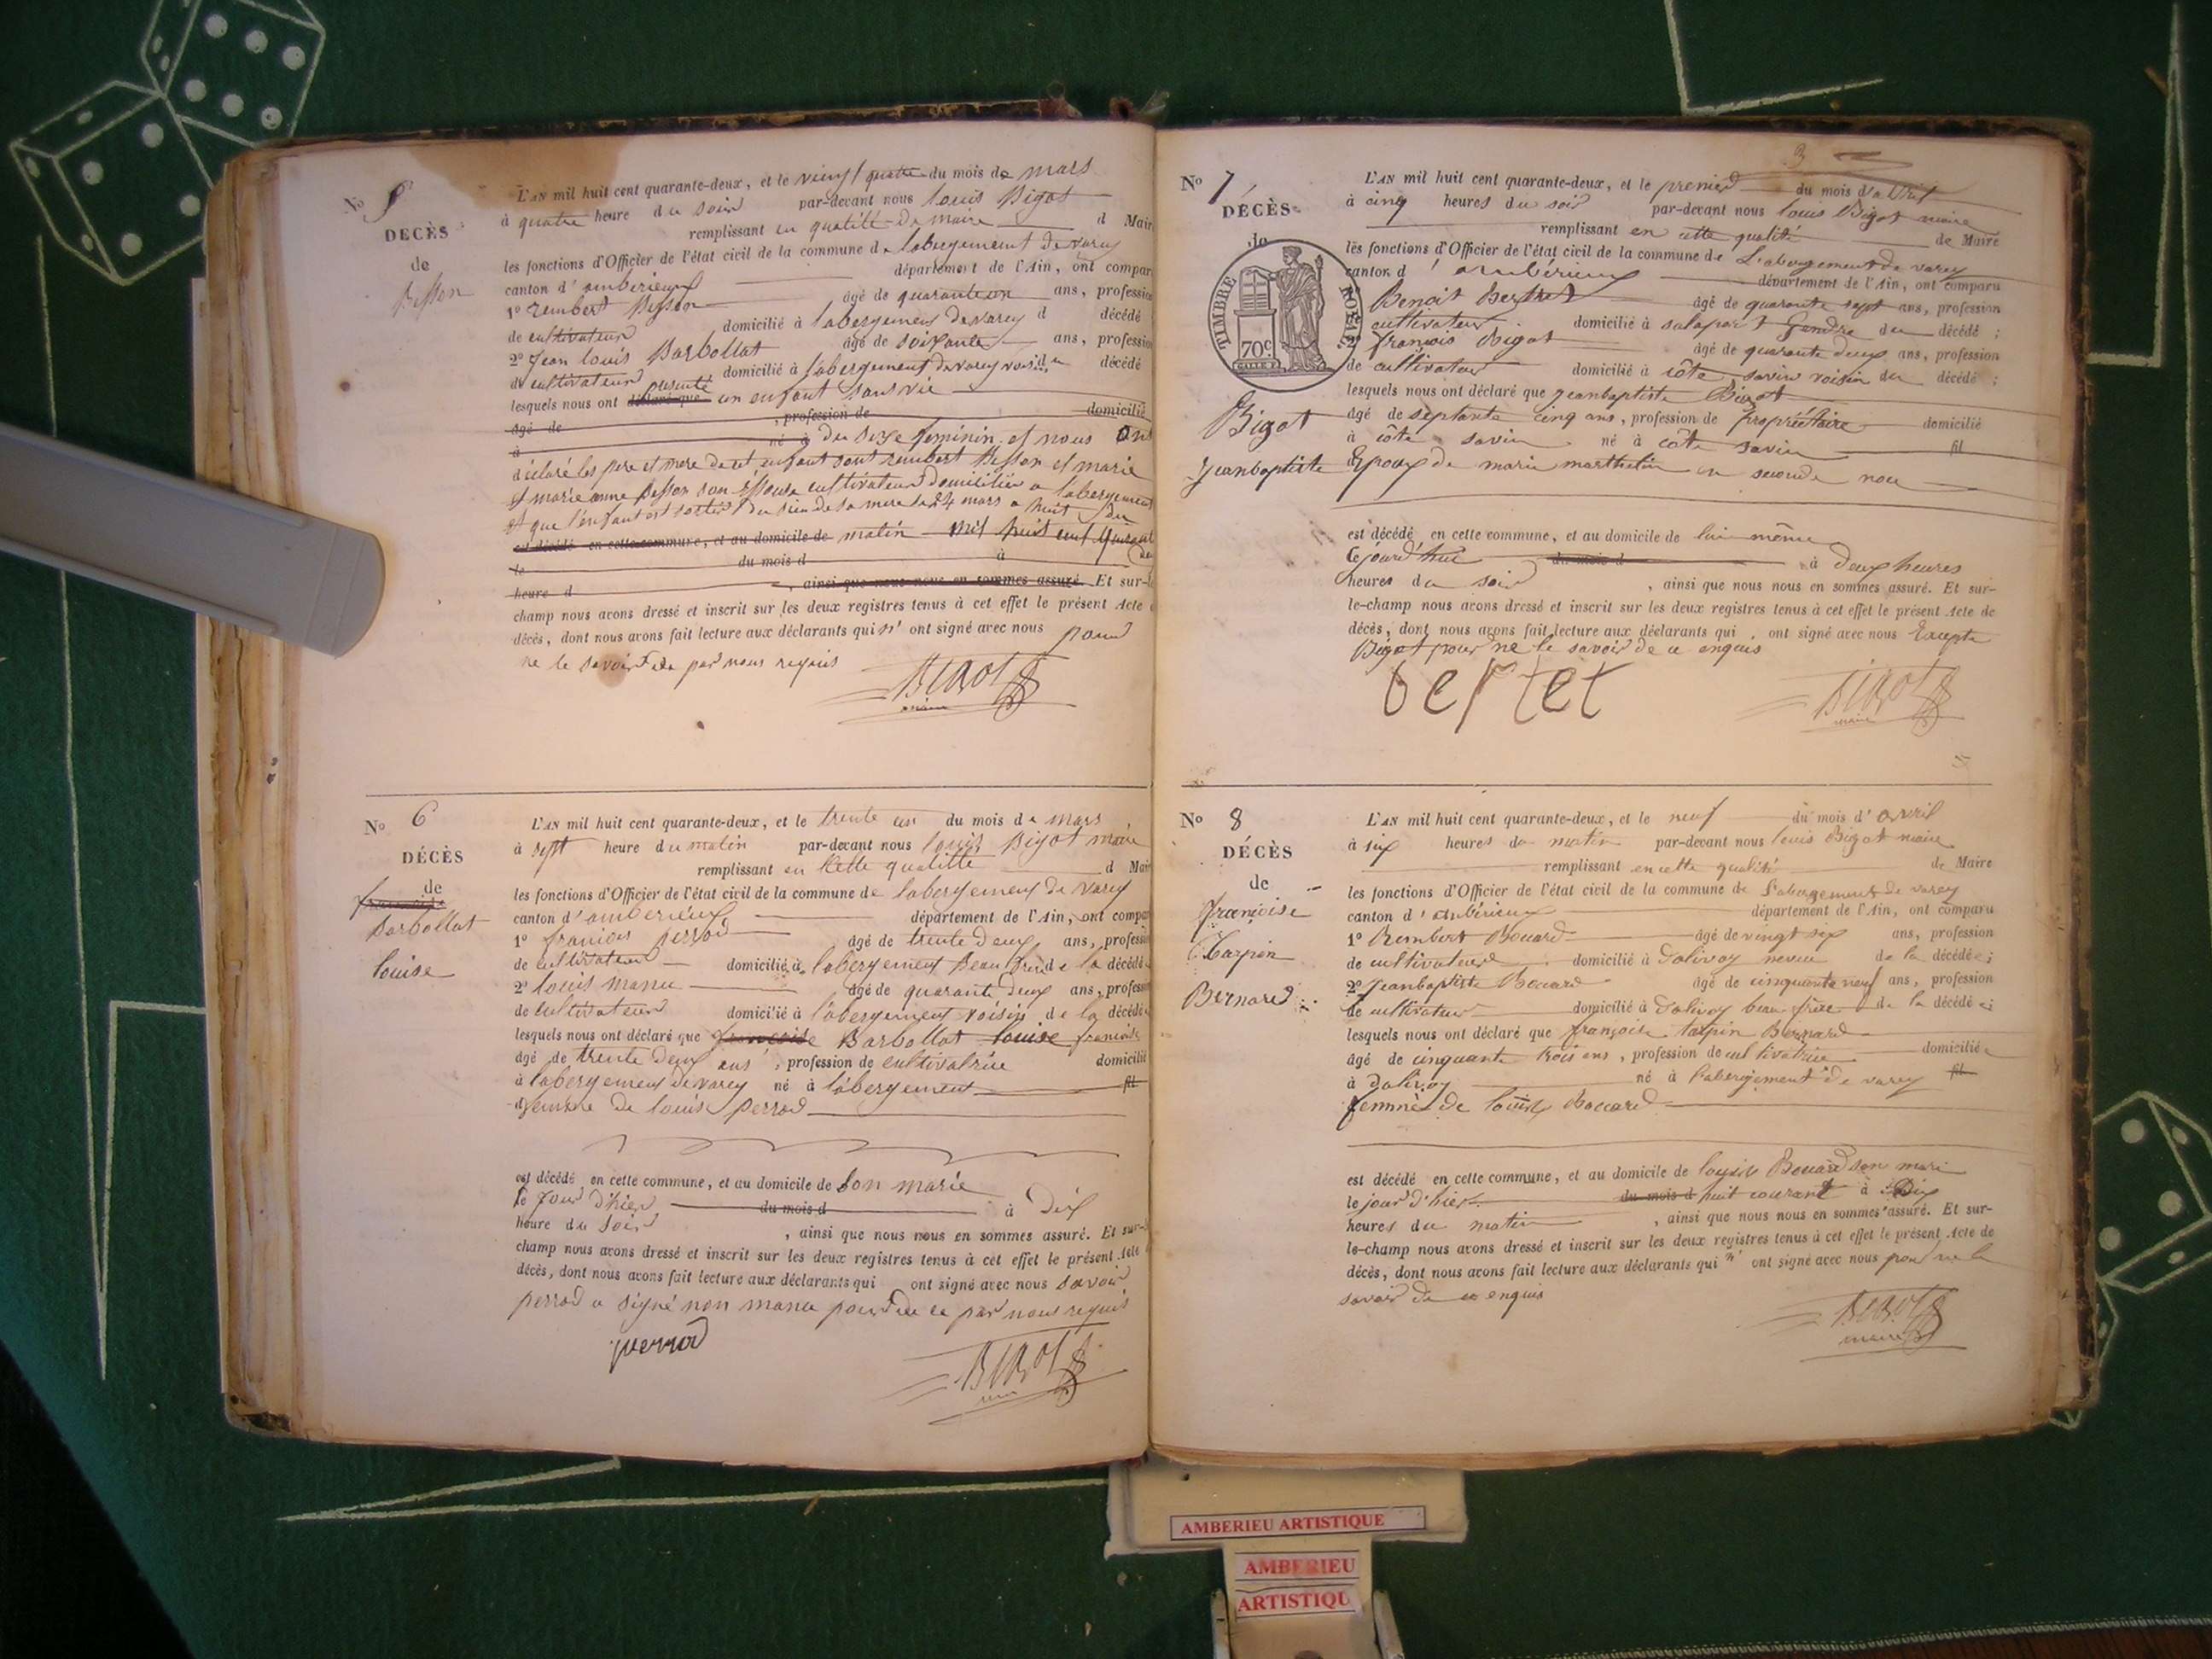 No 5
DÉCÈS
de
Besson
L'AN mil huit cent quarante-deux, et le vingt quatre du mois de mars
à quatre heure du soir par-devant nous louis Bigot
remplissant en qualité de maire d Mair
les fonctions d'Officier de l'état civil de la commune de labergement de varey
canton d'amberieux département de l'Ain, ont compar
1o rembert Besson âgé de quarante un ans, profession
de cultivateur domicilié à labergement de varey d décédé
2o Jean louis Barbollat âgé de soixante ans, profession
de cultivateur domicilié à labergement de varey voisin du décédé
lesquels nous ont déclaré que présenté un enfant sans vie
âgé de , profession de domicilié
à né à du sexe feminin et nous ont
déclaré les pere et mere de cet enfant sont rembert Besson et marie
et marie anne Besson son Epouse cultivateurs domiciliés a labergement
et que l'enfant est sortis du sien de sa mere le 24 mars a huit du
est décédé en cette commune, et au domicile de matin mil huit cent quarante
le du mois d à de
heure d , ainsi que nous nous en sommes assuré. Et sur-le
champ nous avons dressé et inscrit sur les deux registres tenus à cet effet le présent Acte d
décès, dont nous avons fait lecture aux déclarants qui n' ont signé avec nous pour
ne le savoir de ce par nous requis
BIGOT
maire
No 6
DÉCÈS
de
francoise
Barbollat
louise
L'AN mil huit cent quarante-deux, et le trente un du mois de mars
à sept heure du matin par-devant nous louis Bigot maire
remplissant en cette qualitté d Mair
les fonctions d'Officier de l'état civil de la commune de labergement de varey
canton d'amberieux département de l'Ain, ont compar
1o francois perrod âgé de trente deux ans, profession
de cultivateur domicilié à labergement Beau frere de la décédé
2o louis manu âgé de quarante deux ans, profession
de cultivateur domicilié à labergement voisin de la décédé
lesquels nous ont déclaré que francoise Barbollat louise francoise
âgé de trente deux ans , profession de cultivatrice domicilié
à labergement de varey né à labergement fil
femme de louis perrod
est décédé en cette commune, et au domicile de son marie
le jour d'hier du mois d à dix
heure du soir , ainsi que nous nous en sommes assuré. Et sur-le
champ nous avons dressé et inscrit sur les deux registres tenus à cet effet le présent Acte
décès, dont nous avons fait lecture aux déclarants qui ont signé avec nous savoir
perrod a signé non manu pour de ce par nous requis
perrod
BIGOT
3
No 7
DÉCÈS
de
TIMBRE ROYAL
70c
Bigot
Jeanbaptiste
L'AN mil huit cent quarante-deux, et le premier du mois d'avril
à cinq heures du soir par-devant nous louis Bigot maire
remplissant en cette qualité de Maire
les fonctions d'Officier de l'état civil de la commune de L'abergement de varey
canton d'ambérieux département de l'Ain, ont comparu
Benoit Berthet âgé de quarante sept ans, profession
cultivateur domicilié à salaport Gendre du décédé ;
2o françois Bigot âgé de quarante deux ans, profession
de cultivateur domicilié à côte savin voisin du décédé ;
lesquels nous ont déclaré que jeanbaptiste Bigot
âgé de septante cinq ans, profession de propriétaire domicilié
à côte savin né à côte savin fil
Epoux de marie marthelin en seconde noce
est décédé en cette commune, et au domicile de lui même
Cejourd'hui du mois d à deux heures
heures du soir , ainsi que nous nous en sommes assuré. Et sur-
le-champ nous avons dressé et inscrit sur les deux registres tenus à cet effet le présent Acte de
décès, dont nous avons fait lecture aux déclarants qui ont signé avec nous Excepté
Bigot pour ne le savoir de ce enquis
bertet
BIGOT
maire
No 8
DÉCÈS
de
françoise
Carpin
Bernard
L'AN mil huit cent quarante-deux, et le neuf du mois d'avril
à six heures du matin par-devant nous louis Bigot maire
remplissant en cette qualité de Maire
les fonctions d'Officier de l'état civil de la commune de l'abergement de varey
canton d'ambérieux département de l'Ain, ont comparu
1o Rembert Bouard âgé de vingt six ans, profession
de cultivateur domicilié à Dalivoy neveu de la décédée ;
2o Jeanbaptiste Bouard âgé de cinquante neuf ans, profession
de cultivateur domicilié à Dalivoy beau frère de la décédée ;
lesquels nous ont déclaré que françoise tarpin Bernard
âgé de cinquante trois ans, profession de cultivatrice domiciliée
à Dalivoy né à l'abergement de varey fil
femme de louis Bouard
est décédé en cette commune, et au domicile de louis Bouard son mari
le jour d'hier du mois d huit courant à Dix
heures du matin , ainsi que nous nous en sommes assuré. Et sur-
le-champ nous avons dressé et inscrit sur les deux registres tenus à cet effet le présent Acte de
décès, dont nous avons fait lecture aux déclarants qui n' ont signé avec nous pour ne le
savoir de ce enquis
BIGOT
maire
AMBERIEU ARTISTIQUE
AMBERIEU
ARTISTIQU